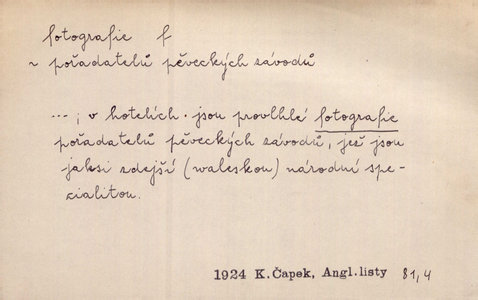 fotografie f
~ pořadatelů pěveckých závodů
...; v hotelích jsou provlhlé fotografie
pořadatelů pěveckých závodů, jež jsou
jaksi zdejší (waleskou) národní spe-
cialitou.
1924 K.Čapek, Angl.listy 81,4